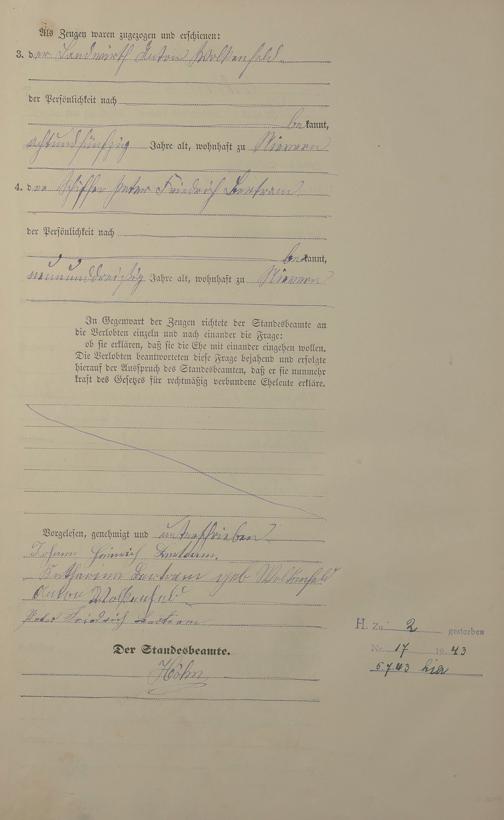 Als Zeugen waren zugezogen und erschienen:
3. der Landwirth Anton Wolkenfeld
der Persönlichkeit nach
bekannt,
achtundfünfzig Jahre alt, wohnhaft zu Nievern
4. der Schiffer Peter Friedrich Bertram
der Persönlichkeit nach
bekannt,
neununddreißig Jahre alt, wohnhaft zu Nievern
In Gegenwart der Zeugen richtete der Standesbeamte an
die Verlobten einzeln und nach einander die Frage:
ob sie erklären, daß sie die Ehe mit einander eingehen wollen.
Die Verlobten beantworteten diese Frage bejahend und erfolgte
hierauf der Ausspruch des Standesbeamten, daß er sie nunmehr
kraft des Gesetzes für rechtmäßig verbundene Eheleute erkläre.
Vorgelesen, genehmigt und unterschrieben
Johann Heinrich Bertram.
Katharina Bertram geb Wolkenfeld
Anton Wolkenfeld
Peter Friedrich Bertram
Der Standesbeamte.
Höhn
H. Zu 2 gestorben
Nr. 17 1943